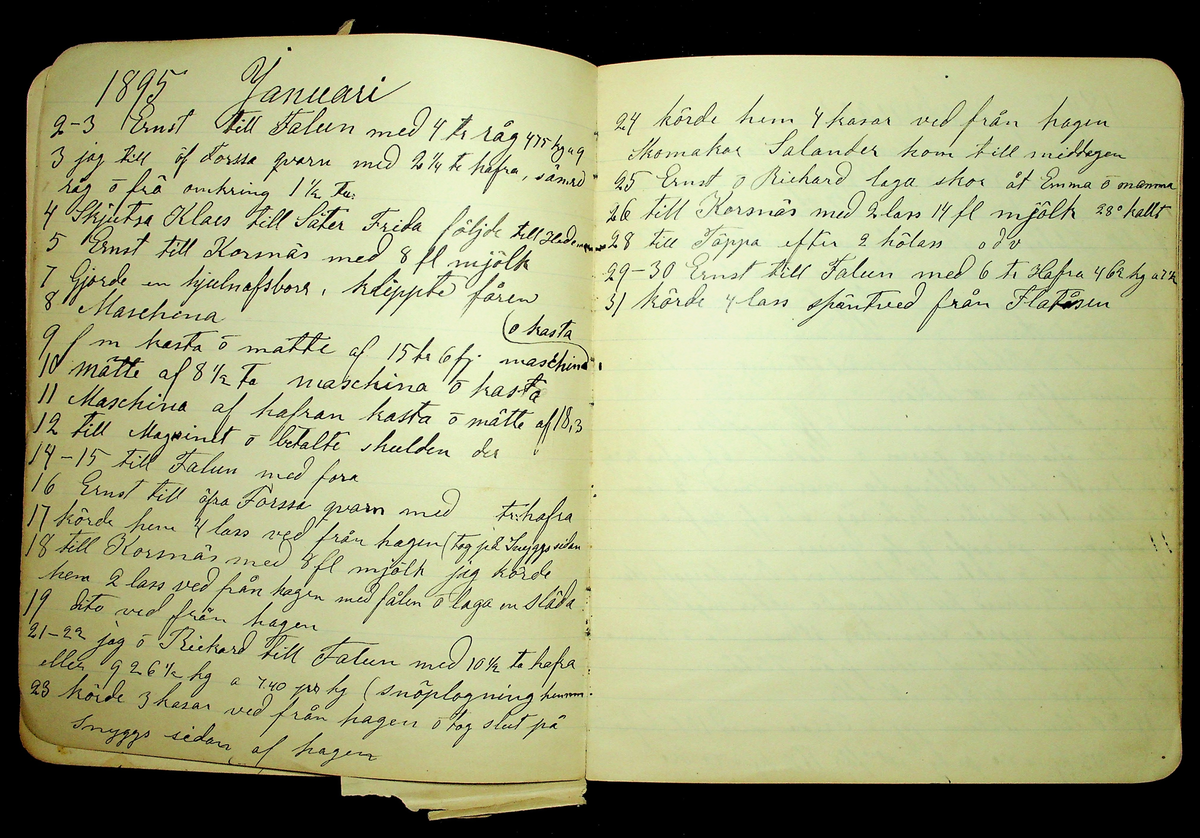 1895 Januari
2-3 Ernst till Falun med 4 tr råg 475 kg a 9
3 jag till öf Forssa qvarn med 2 1/4 tr hafra, samed
råg ō frö omkring 1 1/2 tr:
4 Skjutsa Klaes till Säter Frida följde till
5 Ernst till Korsnäs med 8 fl mjölk
7 Gjorde en hjulnafsborr, klippte fåren
8 Maschina
(o kasta
9 f m kasta ō mätte af 15 tr 6 fj. maschina
10 mätte af 8 1/2 Tr maschina ō kasta
11 Maschina af hafran kasta ō mätte af 18,3
12 till Magsinet ō betalte skulden der
14-15 till Falun med fora
16 Ernst till öfra Forssa qvarn med tr: hafra
17 körde hem 4 lass ved från hagen (tog på Snyggs sidan
18 till Korsnäs med 8 fl mjölk jag körde
hem 2 lass ved från hagen med fålen ō laga en släda
19 dito ved från hagen
21-22 jag ō Rickard till Falun med 10 1/2 tr hafra
eller 926 1/2 kg a 7.40 pr kg (snöplogning hemma
23 körde 3 kasar ved från hagen ō tog slut på
Snyggs sidan af hagen
24 körde hem 4 kasar ved från hagen
Skomakar Salander kom till middagen
25 Ernst o Rickard laga skor åt Emma ō mamma
26 till Korsnäs med 2 lass 14 fl mjölk 28° kallt
28 till Täppa efter 2 hölass o d v
29-30 Ernst till Falun med 6 tr Hafra 462 kg a
31 körde 4 lass späntved från Flatåsen